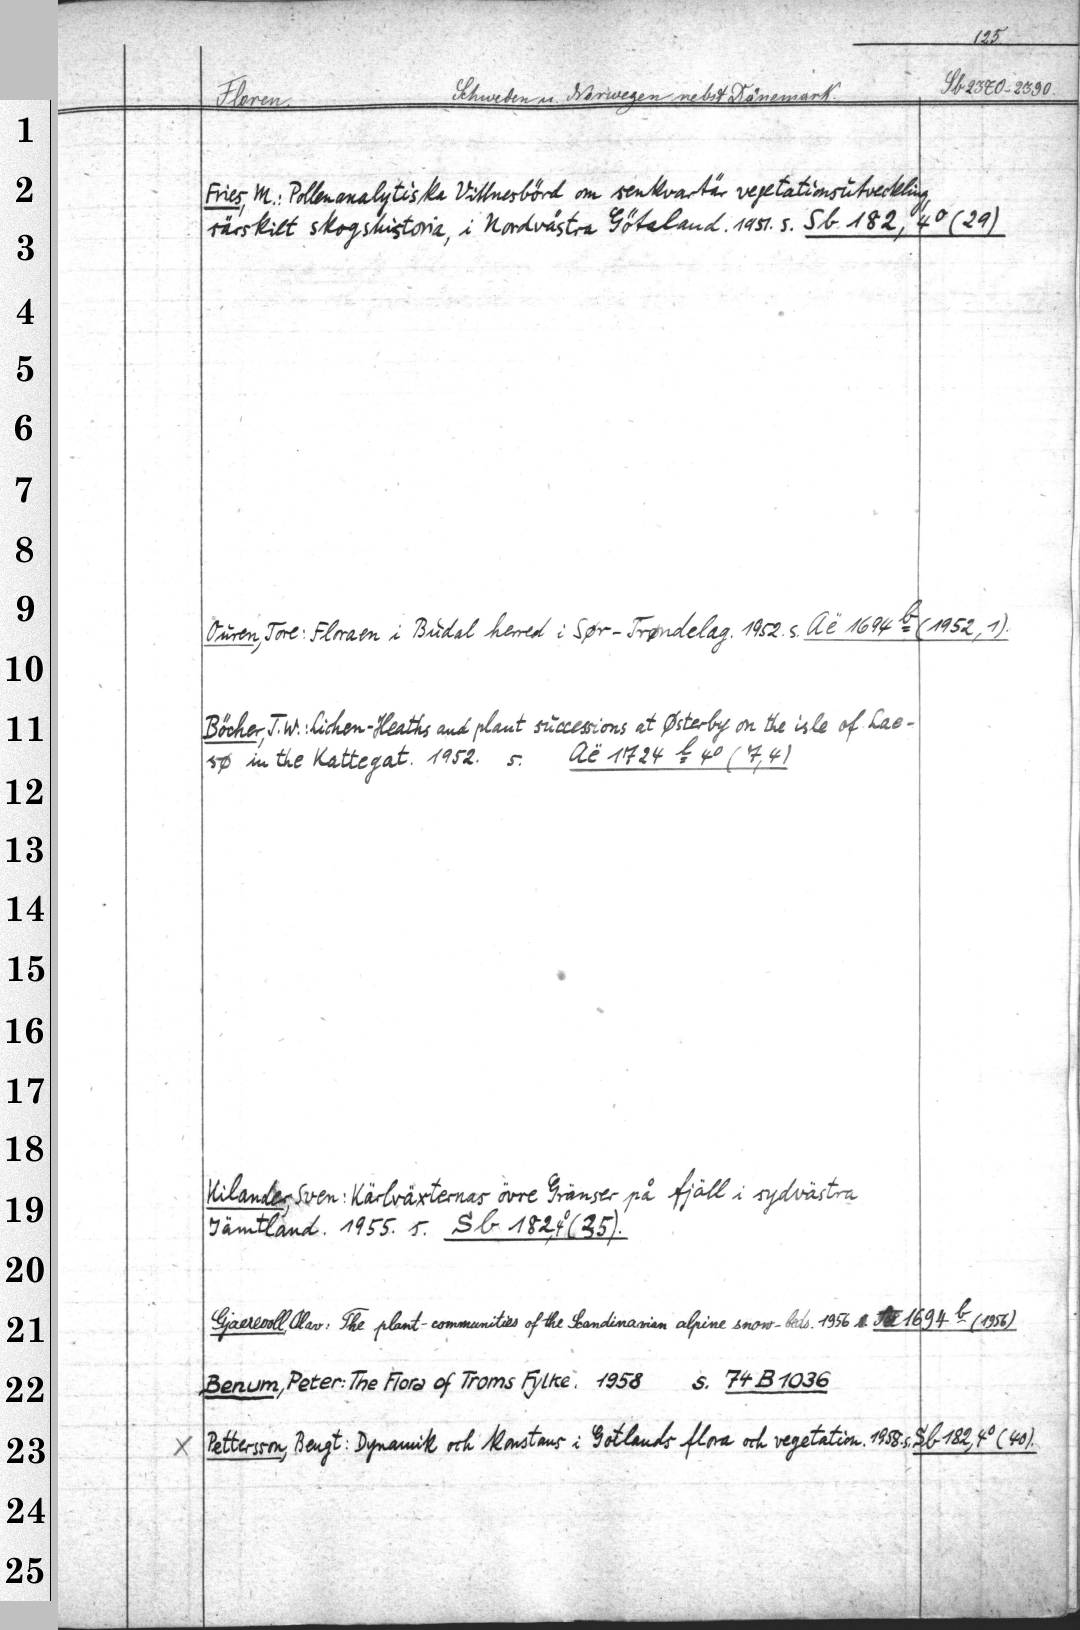 125.
Floren. Schweden u. Norwegen nebst Dänemark. Sb 2370-2390.
1
2 Fries, M.: Pollenanalytiska Vittnesbörd om senkvartär vegetationsutveckling,
3 särskilt skogshistoria, i Nordvästra Götaland. 1951. s. Sb 182, 4° (29)
4
5
6
7
8
9 Ouren, Tore: Floraen i Budal herred i Sør-Trøndelag. 1952. s. Aë 1694 b (1952, 1).
10
11 Böcher, T.W.: Lichen-Heaths and plant successions at Østerby on the isle of Lae-
sø in the Kattegat. 1952. s. Aë 1724 b 4° (7,4)
12
13
14
15
16
17
18
19 Kilander, Sven: Kärlväxternas övre Gränser på fjäll i sydvästra
Jämtland. 1955. s. Sb 182,4° (35).
20
21 Gjaerevoll, Olav: The plant-communities of the Scandinavian alpine snow-beds. 1956 s. 1694 b (1956)
22 Benum, Peter: The Flora of Troms Fylke. 1958 s. 74 B 1036
23 x Pettersson, Bengt: Dynamik och Konstans i Gotlands flora och vegetation. 1958. s. Sb 182, 4° (40).
24
25